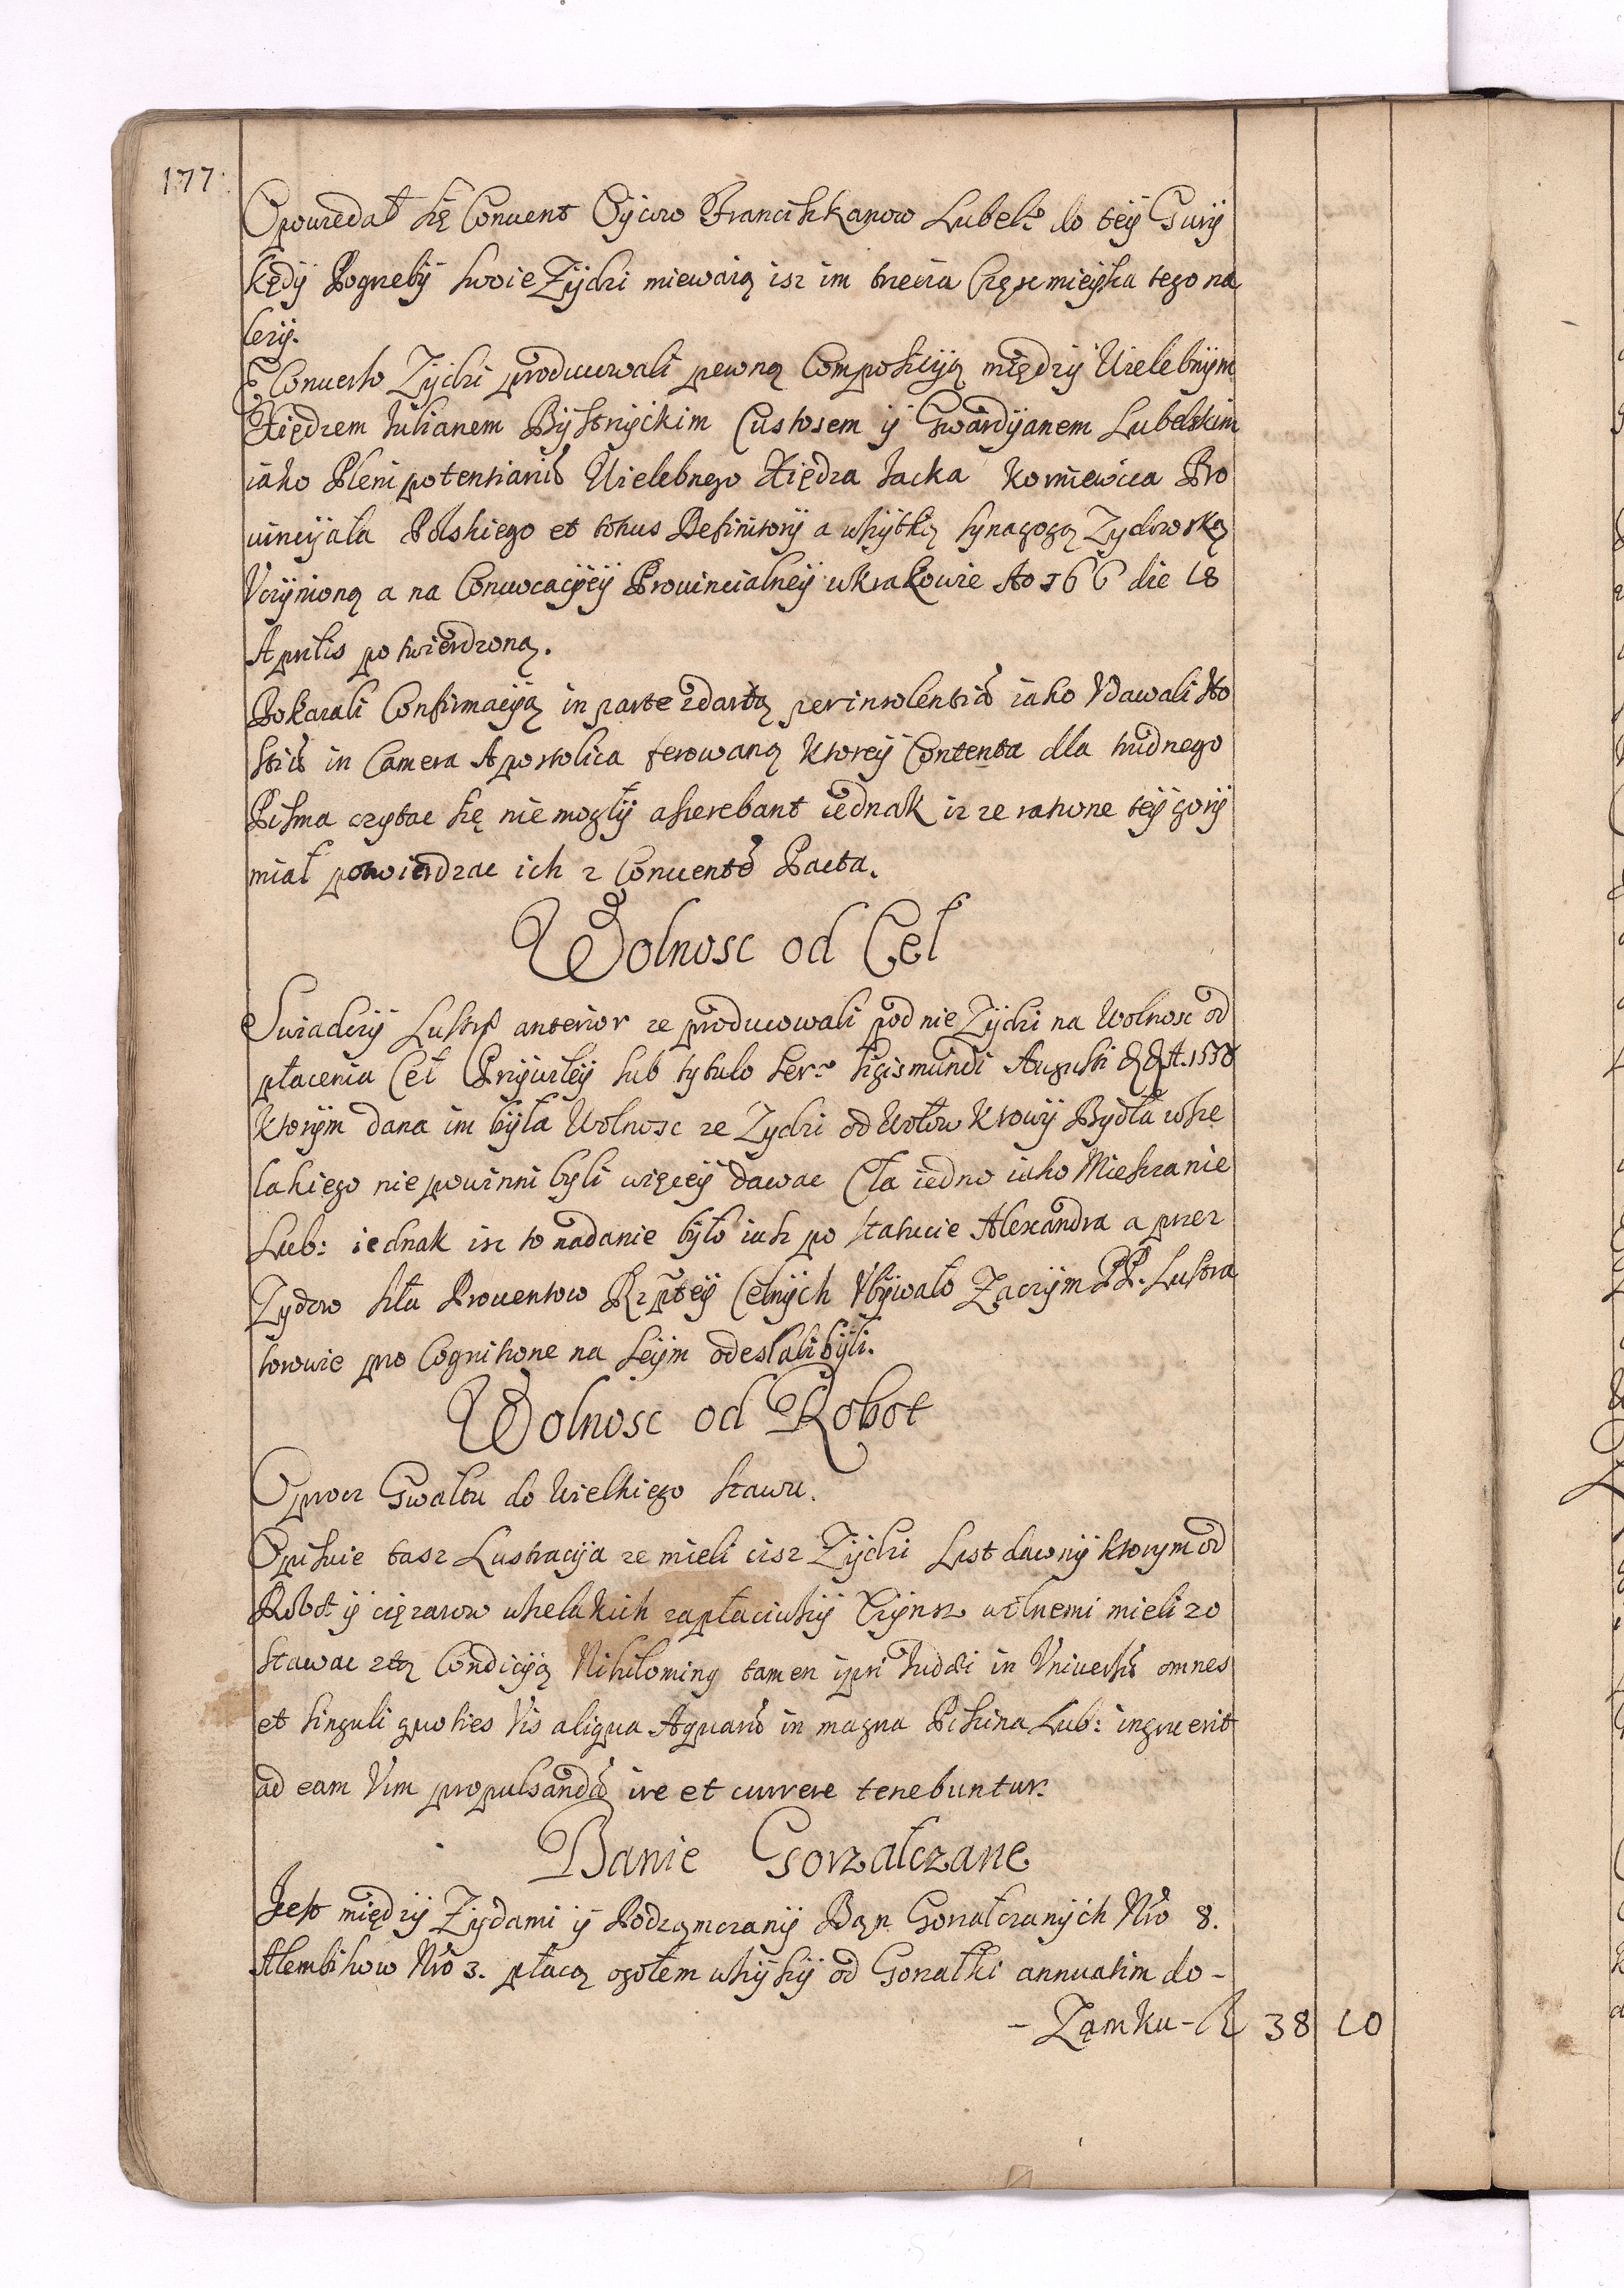 177.
Opowiedał się Conuent Oycow Franciszkanow Lubels. do teÿ Gurÿ
kędÿ Pogrzebÿ swoie Zÿdzi miewaią isz im trzecia Część mieÿsca tego na
leżÿ.
E Conuerso Zÿdzi producowali pewną Composicÿą międzÿ Wielebnÿm
Xiędzem Iulianem Bÿstrzÿckim Custosem ÿ Gwardÿanem Lubelskim
iako Plenipotentiariũ Wielebnego Xiędza Iacka Korniewicza Pro
uincÿała Polskiego et totius Definitorÿ a wszÿtką sÿnagogą Zydowską
Vczÿnioną a na Conuocacÿeÿ Prouincialneÿ w Krakowie Ao 166 die 18
Aprilis potwierdzoną.
Pokazali Confirmacÿą in parte zdartą per insolentiã iako Vdawali Ho
stiũ in Camera Apostolica ferowaną Ktoreÿ Contenta dla trudnego
Pisma czytac się nie mogłÿ asserebant iednak iz ze ratione teÿ gorÿ
miał potwierdzac ich z Conuentẽ Pacta.
Wolnosc od Ceł
Swiadczÿ Lustr. anterior ze producowali pod nie Zÿdzi na Wolnosc od
płacenia Ceł Przÿwileÿ sub tytulo Ser. Sigismundi Augusti A. 1558
Ktorÿm dana im bÿła Wolnosc ze Zydzi od Wołow Krowÿ Bÿdła wsze
lakiego nie powinni byli więceÿ dawac Cła iedno iako Mieszczanie
Lub: iednak isz to nadanie bÿło iusz po statucie Alexandra a przez
Zydow siła Prouentow Rzpteÿ Celnÿch Vbÿwało Zaczÿm PP. Lustra
torowie pro Cognitione na Seÿm odesłali bÿli.
Wolnosc od Robot
Oprocz Gwałtu do Wielkiego stawu.
Opisuie tasz Lustracÿa ze mieli cisz Zÿdzi List dawnÿ ktorym od
Robot ÿ cięzarow wszelakich zapłaciwszÿ Czÿnsz wolnemi mieli zo
stawac z tą Condicÿą Nihilominq tamen ipsi Iudæi in Vniuersũ omnes
et singuli quoties Vis aliqua Aquarũ in magna Piscina Lub: ingruerit
ad eam Vim propulsandã ire et currere tenebuntur.
Banie Gorzałczane
Iest międzÿ Zydami ÿ Podzamczanÿ Bań Gorzałczanÿch Nro 8.
Alembikow Nro 3. płacą ogołem wszÿscÿ od Gorzałki annuatim do -
- Zamku - fl 38 10